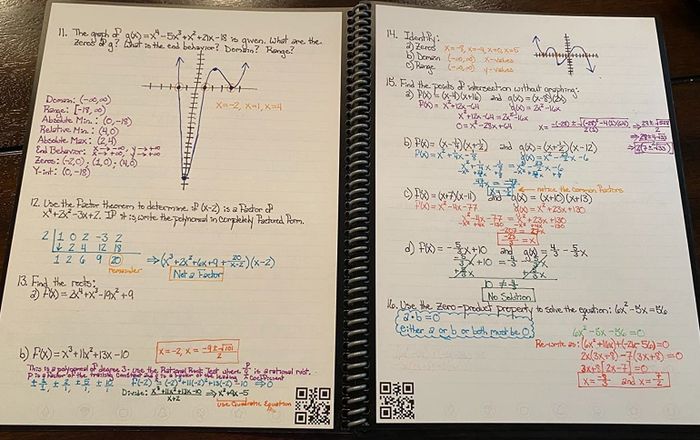 11. The graph of g(x)=x⁴-5x³+x²+21x-18 is given. What are the
zeros of g? What is the end behavior? Domain? Range?
Domain: (-∞,∞)
Range: [-18,∞)
Absolute Min.: (0,-18)
Relative Min.: (4,0)
Absolute Max.: (2,4)
End Behavior:
Zeros: (-2,0); (1,0); (4,0)
Y-int: (0,-18)
x=-2, x=1, x=4
12. Use the Factor theorem to determine if (x-2) is a factor of
x⁴+2x²-3x+2. If it is, write the polynomial in completely factored form.
2 | 1 0 2 -3 2
↓ 2 4 12 18
1 2 6 9 20
remainder
⇒(x³+2x²+6x+9+20/(x-2))(x-2)
Not a Factor
13. Find the roots:
a) f(x)=2x⁴+x³-19x²+9
b) f(x)=x³+11x²+13x-10
x=-2, x=
This is a polynomial of degree 3 - use the Rational Roots Test where p/q is a rational root.
p is a factor of the trailing constant and q is a factor of the leading coefficient
f(-2)=(-2)³+11(-2)²+13(-2)-10 ⇒0
Divide: x³+11x²+13x-10 / x+2 ⇒x²+9x-5
use Quadratic Equation
14. Identify:
a) Zeros
b) Domain (-∞,∞) x-values
c) Range (-∞,∞) y-values
15. Find the points of intersection without graphing:
a) f(x)=(x-4)(x+16) and g(x)=(x-8)(2x)
f(x)=x²+12x-64 g(x)=2x²-16x
x²+12x-64=2x²-16x
0=x²-28x+64
notice the common factors
c) f(x)=(x+7)(x-11) and g(x)=(x+10)(x+13)
f(x)=x²-4x-77 g(x)=x²+23x+130
x²-4x-77=x²+23x+130
d) f(x)=-5/3x+10 and g(x)=4/3-5/3x
-5/3x+10=4/3-5/3x
10≠4/3
No Solution
16. Use the zero-product property to solve the equation: 6x²-5x=56
a·b=0
either a or b or both must be 0
6x²-5x-56=0
Re-write as: (6x²+16x)+(-21x-56)=0
2x(3x+8)-7(3x+8)=0
(3x+8)(2x-7)=0
x=-8/3 and x=7/2